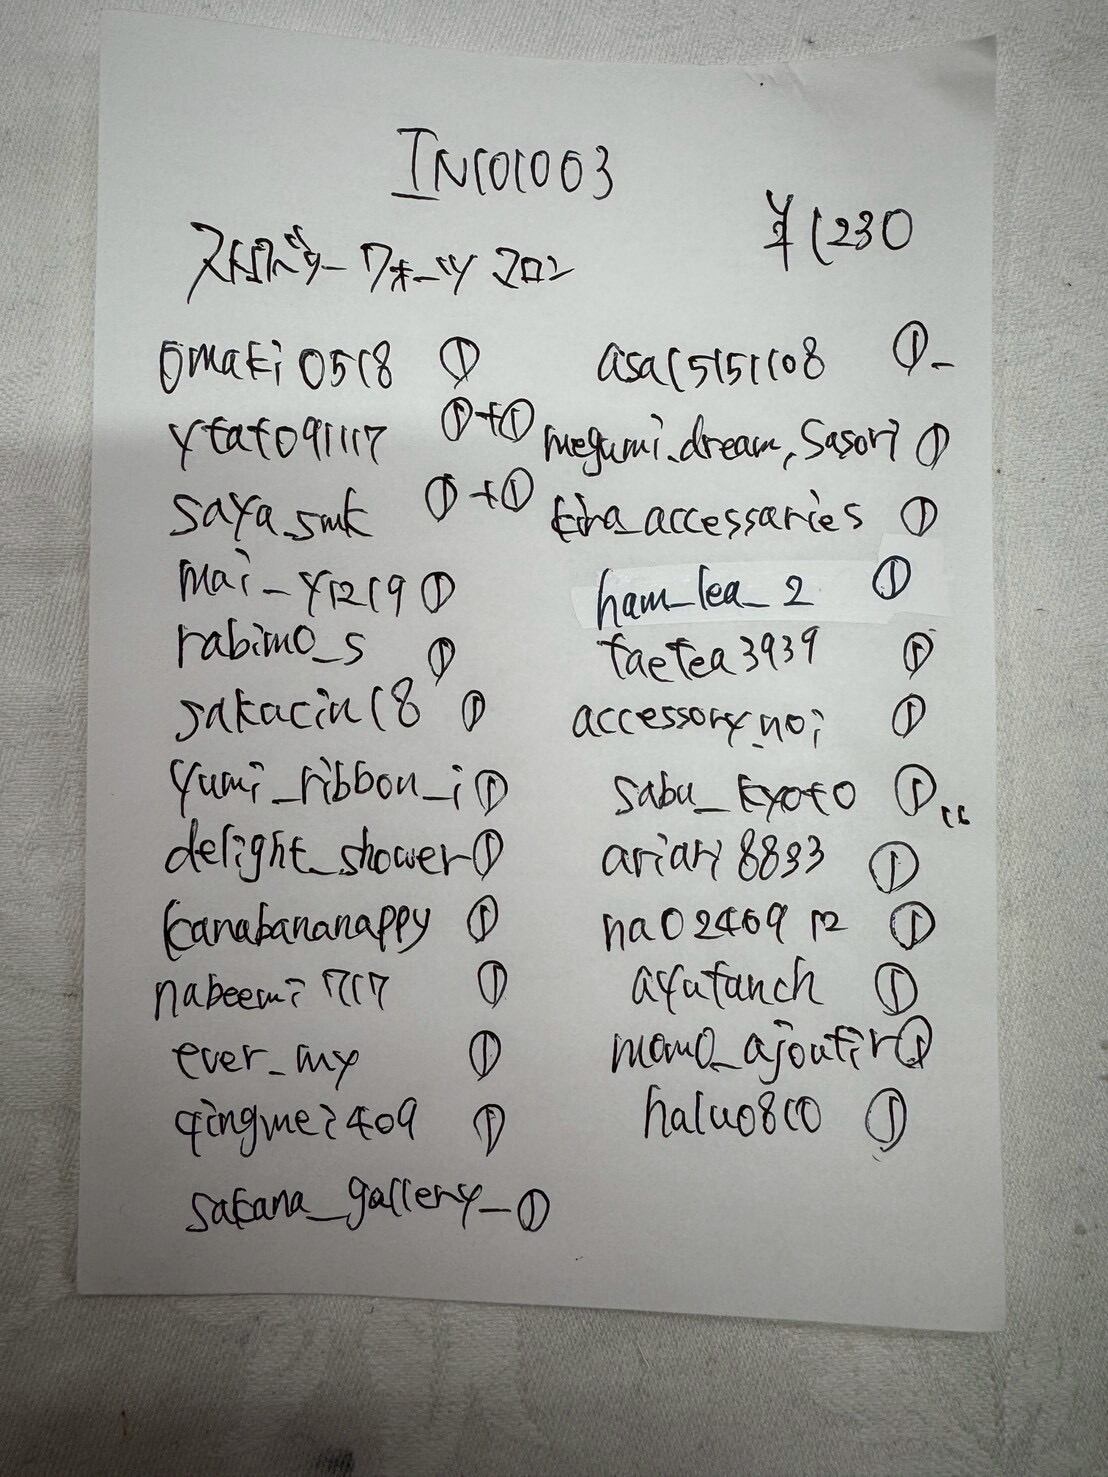 IN101003
¥1230
ストロベリークォーツ マロン
omaki0518 ①
ytato091117 ①+①
saya_smk ①+①
mai_y1219 ①
rabimo_s ①
sakacin18 ①
yumi_ribbon_i ①
delight_shower ①
kanabananappy ①
nabeemi717 ①
ever_my ①
qingmei409 ①
sakana_gallery_ ①
asa15151108 ①_
megumi.dream.sasori ①
kira_accessaries ①
ham_lea_2 ①
taetea3939 ①
accessory_noi ①
sabu_kyoto ①
ariari8833 ①
na0240912 ①
ayutanch ①
momo_ajoutir ①
halu0810 ①